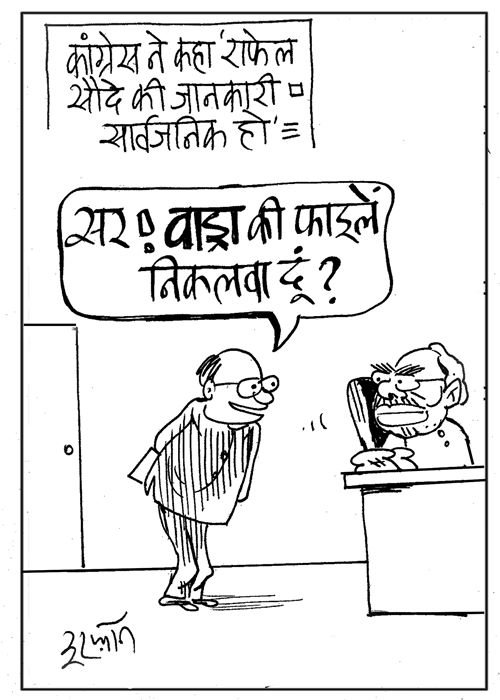 कांग्रेस ने कहा 'राफेल
सौदे की जानकारी
सार्वजनिक हो'
सर! वाड्रा की फाइलें
निकलवा दूं?
इरफ़ान